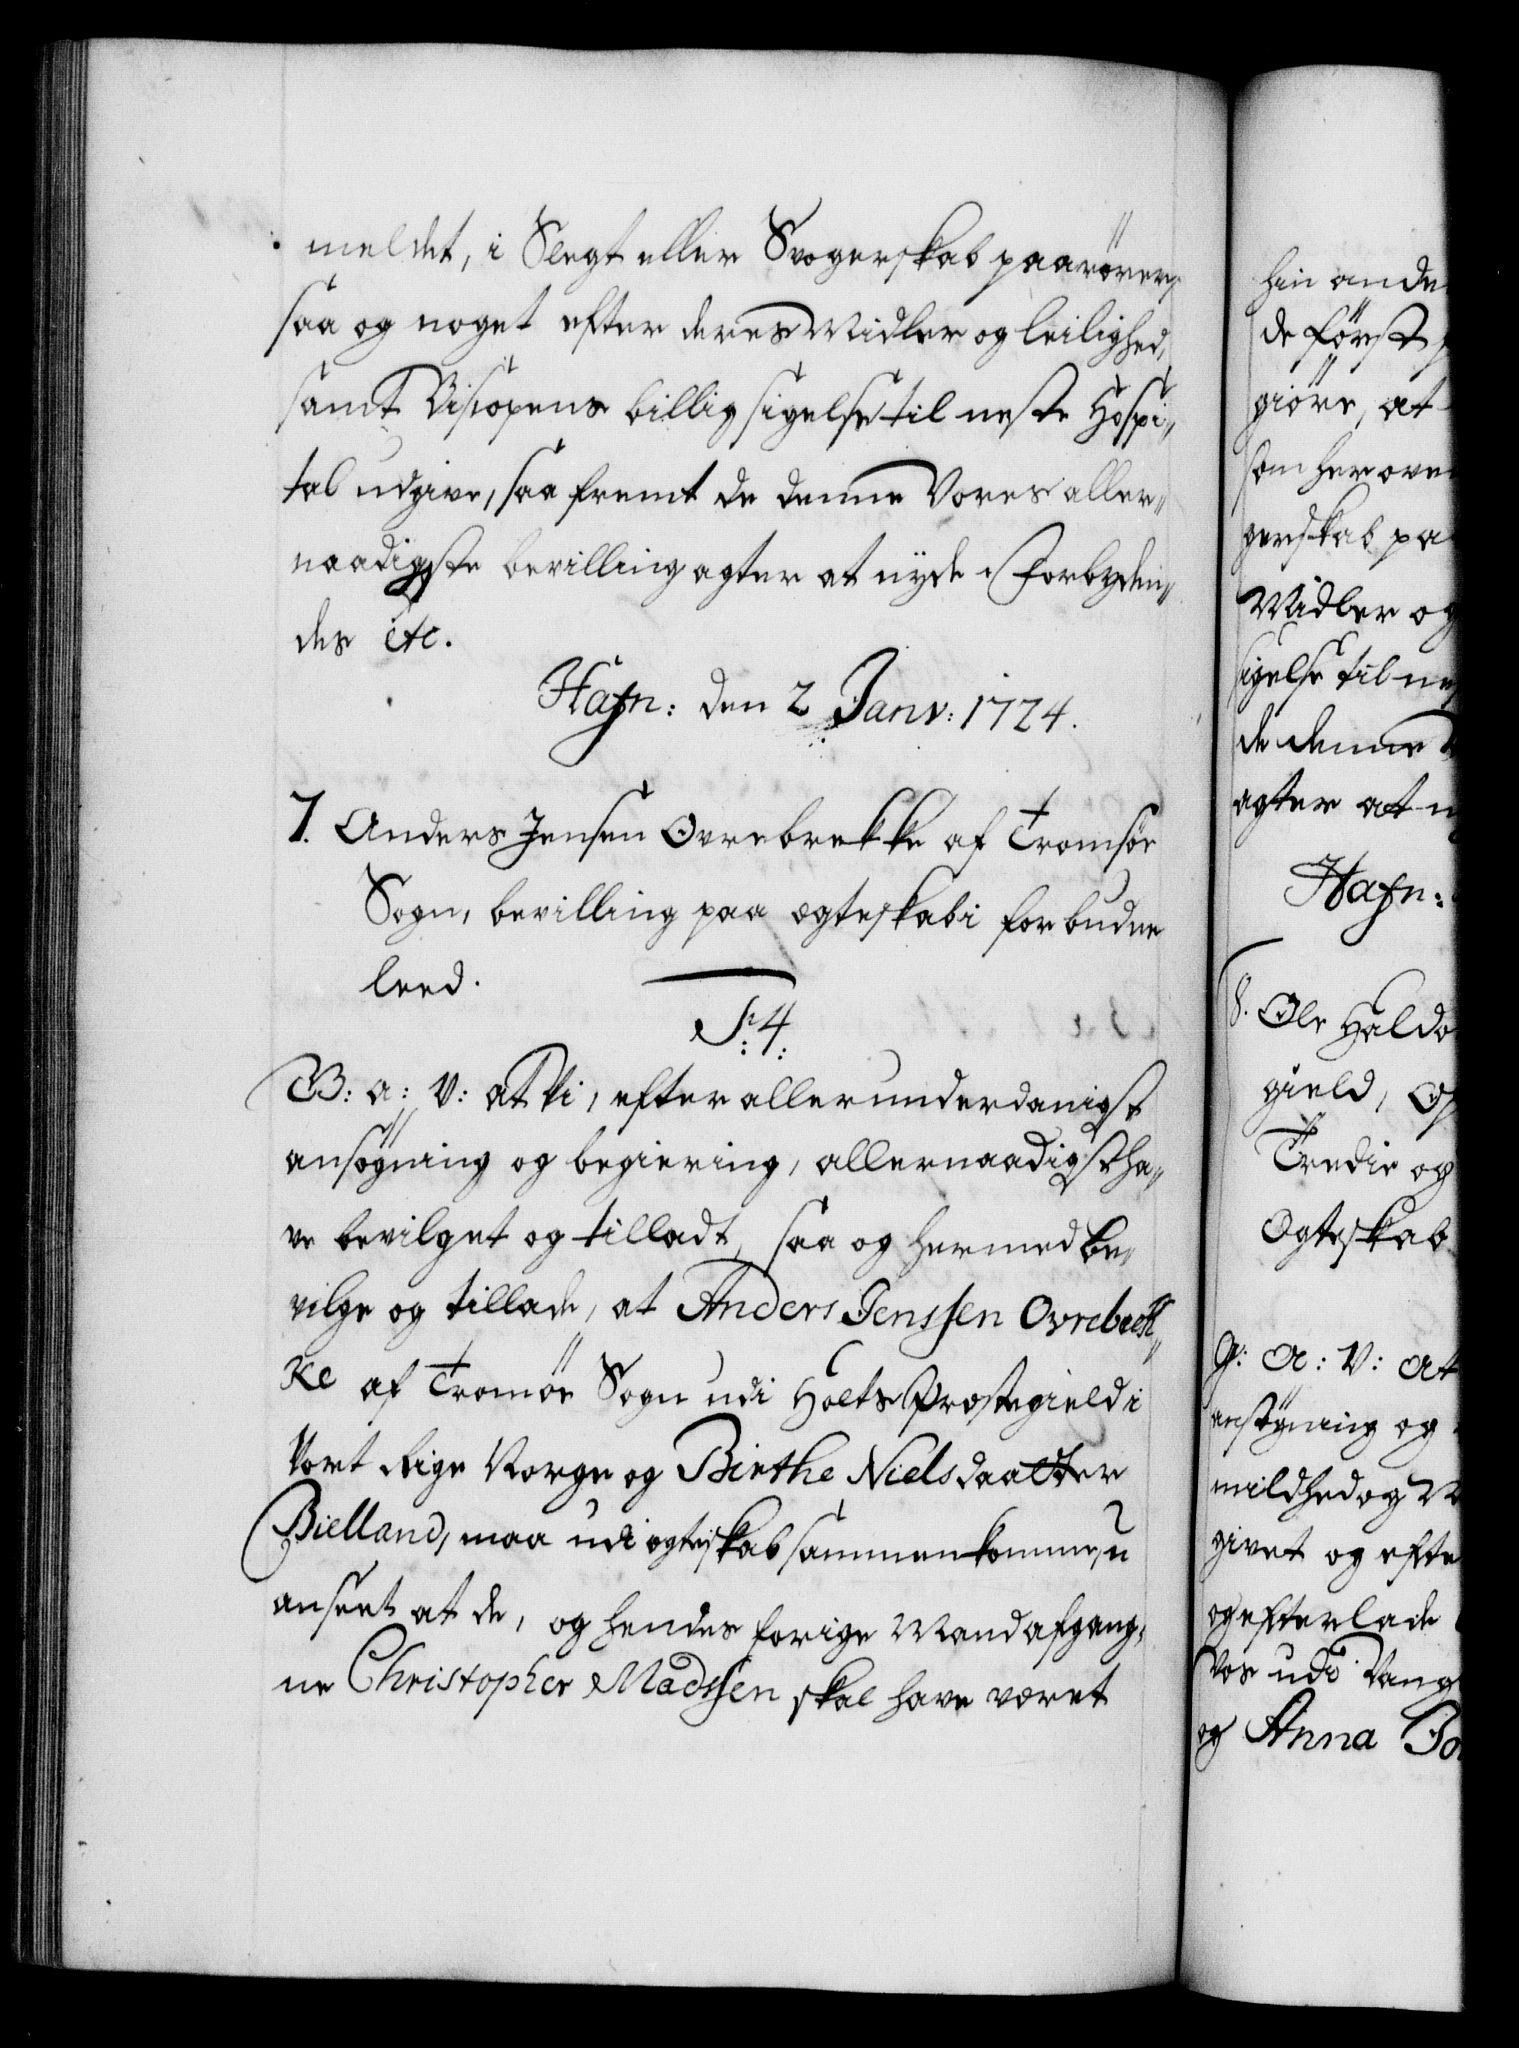 meldet, i Slegt eller Svogerskab paarörer,
saa og noget efter deres Midler og leilighed,
samt Biscopens billigsigelse til neste Hospi„
tal udgive, saa fremt de denne Vores aller„
naadigste bevilling agter at nyde. Forbyden„
des etc.
Hafn: den 2 Janv: 1724.
7. Anders Jensen Ovrebrekke af Tromsöe
Sogn, bevilling paa ægteskab i forbudne
leed.
F: 4.
G: a: V: at Vi, efter allerunderdanigst
ansögning og begiering, allernaadigst ha„
ve bevilget og tilladt, saa og hermed be„
vilge og tillade, at Anders Jenssen Ovrebrek„
ke af Tromöe Sogn udi Holts Præstegield i
Vort Rige Norge og Birthe Nielsdaatter
Bielland, maa udi ægteskab sammenkomme, u
anseet at de, og hendes forige Mand afgang„
ne Christopher Madssen skal have været
hin ande
de först
giöre, at
som her oven
gerskab pa
Midler og
sigelse til ne
de denne
agter at n
Hafn:
8. Ole Haldo
gield,
Tredie og
Ægteskab
G: a: V: at
ansögning og
mildhed og
givet og efter
og efterlade
Vos udi Vang
og Anna